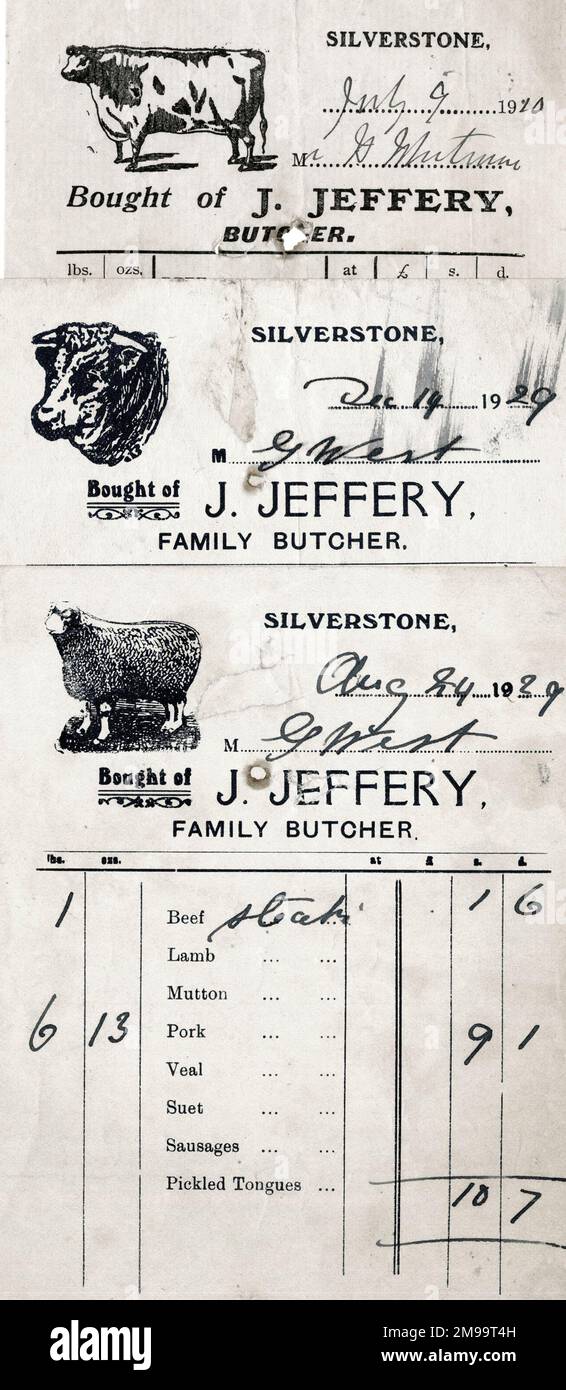 SILVERSTONE,
July 9 1910
Mr G
Bought of J. JEFFERY,
BUTCHER.
lbs. ozs. at £ s. d.
SILVERSTONE,
Dec 14 1929
M G West
Bought of J. JEFFERY,
FAMILY BUTCHER.
SILVERSTONE,
Aug 24 1929
M G West
Bought of J. JEFFERY,
FAMILY BUTCHER.
lbs. ozs. at £ s. d.
1 Beef steak 1 6
Lamb ... ...
Mutton ... ...
6 13 Pork ... ... 9 1
Veal ... ...
Suet ... ...
Sausages ... ...
Pickled Tongues ...
10 7
alamy
Image ID: 2M99T4H
www.alamy.com